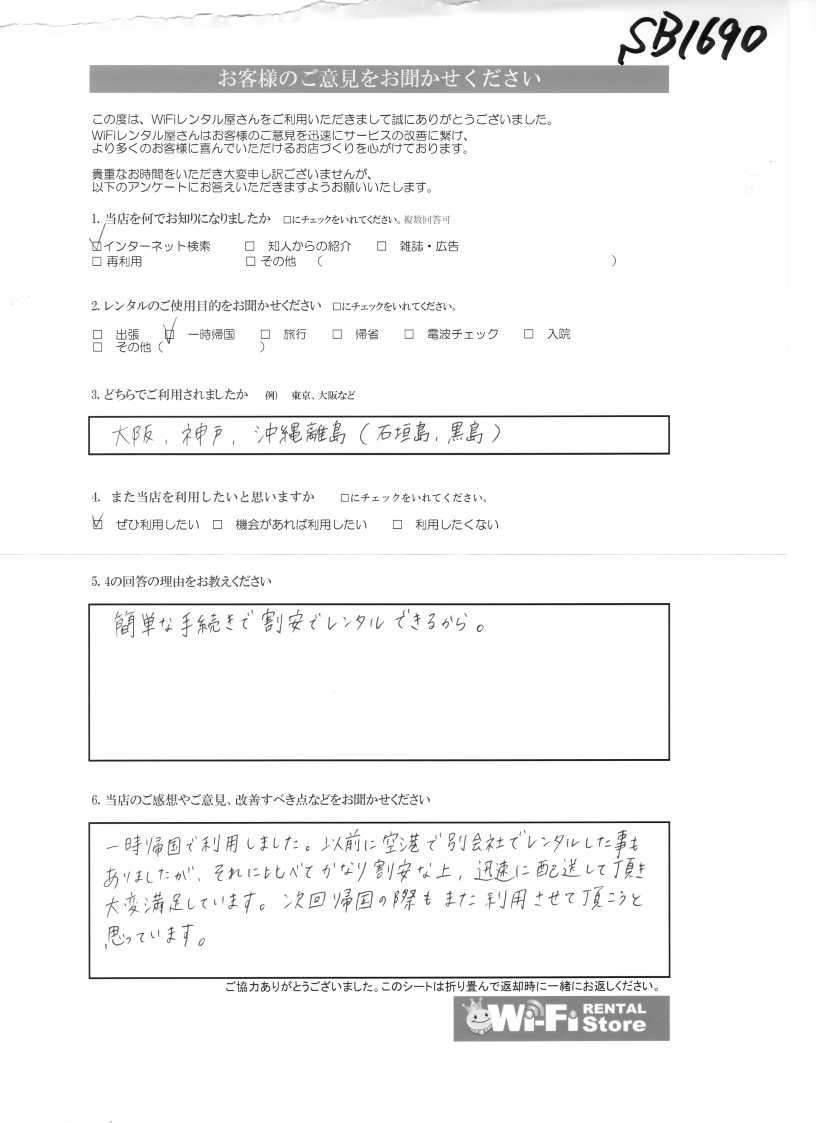 SB1690
お客様のご意見をお聞かせください
この度は、WiFiレンタル屋さんをご利用いただきまして誠にありがとうございました。
WiFiレンタル屋さんはお客様のご意見を迅速にサービスの改善に繋げ、
より多くのお客様に喜んでいただけるお店づくりを心がけております。
貴重なお時間をいただき大変申し訳ございませんが、
以下のアンケートにお答えいただきますようお願いいたします。
1. 当店を何でお知りになりましたか □にチェックをいれてください。複数回答可
☑インターネット検索 □ 知人からの紹介 □ 雑誌・広告
□ 再利用 □ その他 ( )
2. レンタルのご使用目的をお聞かせください □にチェックをいれてください。
□ 出張 ☑ 一時帰国 □ 旅行 □ 帰省 □ 電波チェック □ 入院
□ その他 ( )
3. どちらでご利用されましたか 例) 東京、大阪など
大阪、神戸、沖縄離島(石垣島、黒島)
4. また当店を利用したいと思いますか □にチェックをいれてください。
☑ ぜひ利用したい □ 機会があれば利用したい □ 利用したくない
5. 4の回答の理由をお教えください
簡単な手続きで割安でレンタルできるから。
6. 当店のご感想やご意見、改善すべき点などをお聞かせください
一時帰国で利用しました。以前に空港で別会社でレンタルした事も
ありましたが、それに比べてかなり割安な上、迅速に配送して頂き
大変満足しています。次回帰国の際もまた利用させて頂こうと
思っています。
ご協力ありがとうございました。このシートは折り畳んで返却時に一緒にお返しください。
Wi-Fi RENTAL Store